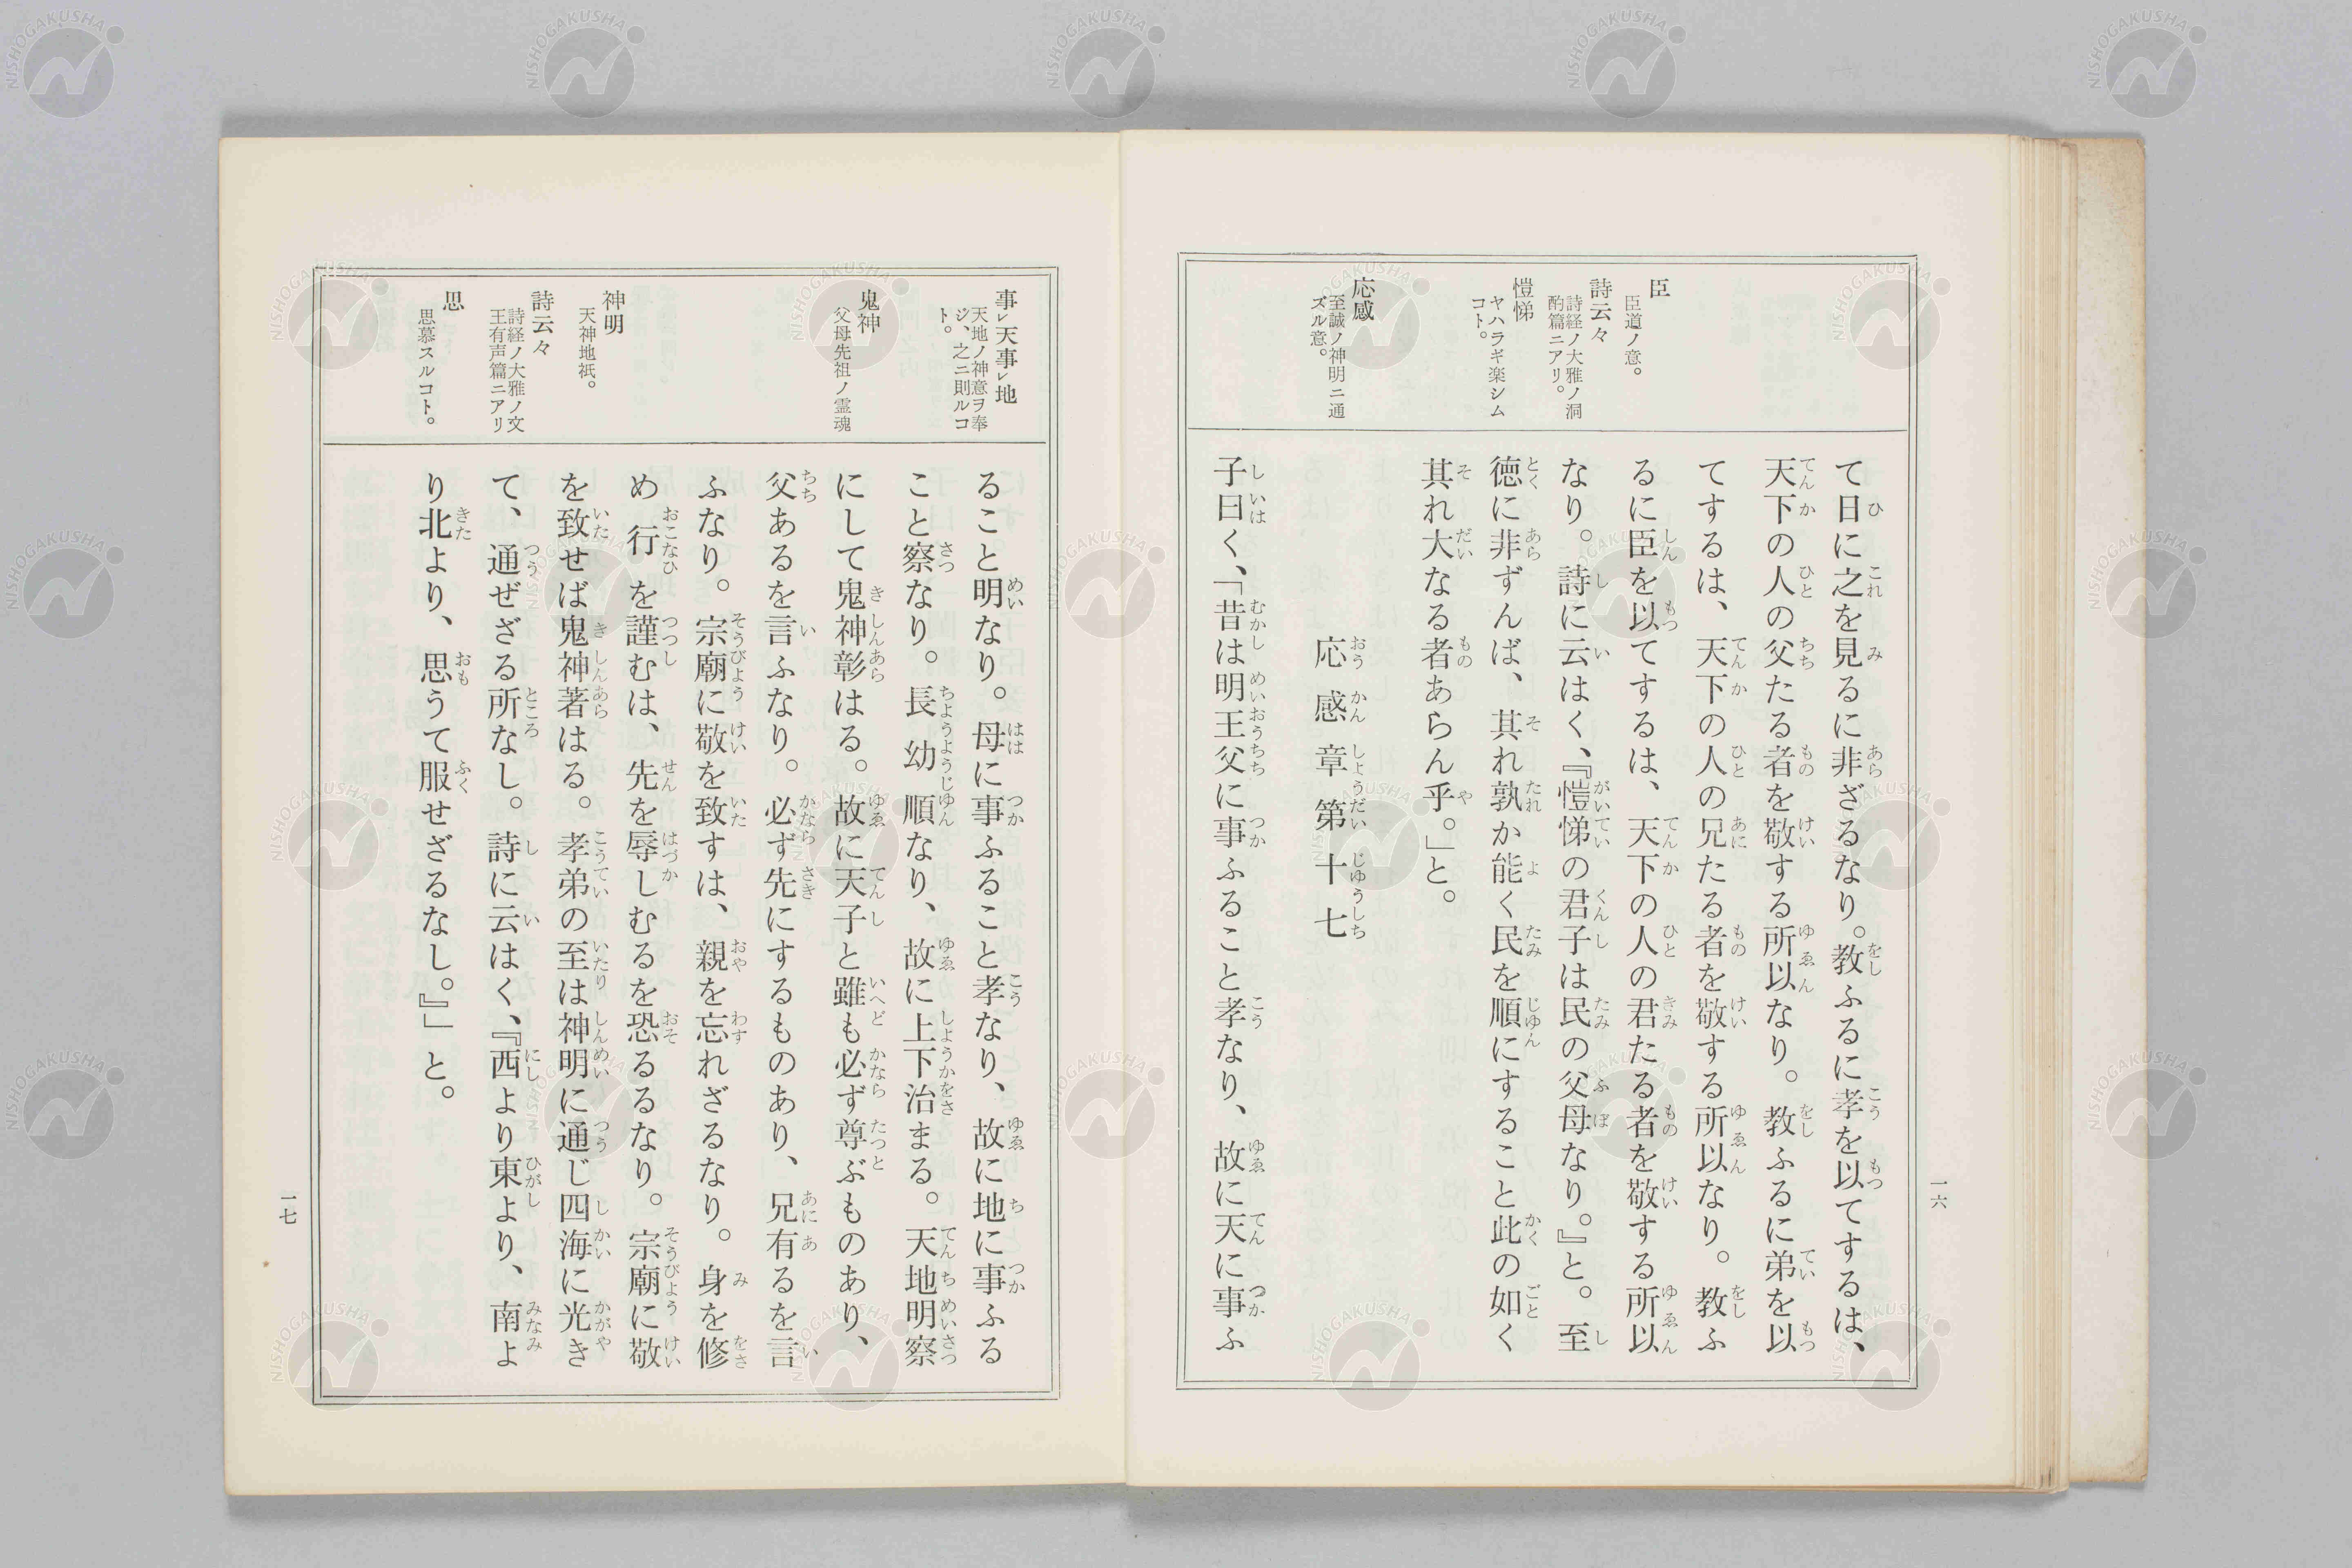 臣
臣道ノ意。
詩云々
詩経ノ大雅ノ洞
酌篇ニアリ。
愷悌
ヤハラギ楽シム
コト。
応感
至誠ノ神明ニ通
ズル意。
て日に之を見るに非ざるなり。教ふるに孝を以てするは、
天下の人の父たる者を敬する所以なり。教ふるに弟を以
てするは、天下の人の兄たる者を敬する所以なり。教ふ
るに臣を以てするは、天下の人の君たる者を敬する所以
なり。詩に云はく、『愷悌の君子は民の父母なり。』と。至
徳に非ずんば、其れ孰か能く民を順にすること此の如く
其れ大なる者あらん乎。」と。
応感章第十七
子曰く、「昔は明王父に事ふること孝なり、故に天に事ふ
一六
事レ天事レ地
天地ノ神意ヲ奉
ジ、之ニ則ルコ
ト。
鬼神
父母先祖ノ霊魂
神明
天神地祇。
詩云々
詩経ノ大雅ノ文
王有声篇ニアリ
思
思慕スルコト。
ること明なり。母に事ふること孝なり、故に地に事ふる
こと察なり。長幼順なり、故に上下治まる。天地明察
にして鬼神彰はる。故に天子と雖も必ず尊ぶものあり、
父あるを言ふなり。必ず先にするものあり、兄有るを言
ふなり。宗廟に敬を致すは、親を忘れざるなり。身を修
め行を謹むは、先を辱しむるを恐るるなり。宗廟に敬
を致せば鬼神著はる。孝弟の至は神明に通じ四海に光き
て、通ぜざる所なし。詩に云はく、『西より東より、南よ
り北より、思うて服せざるなし。』」と。
一七
NISHOGAKUSHA